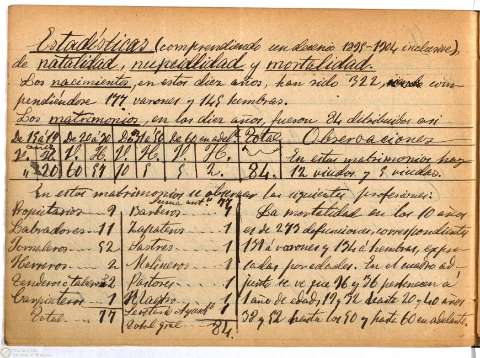 Estadísticas (comprendiendo un decenio 1895-1904 inclusive),
de natalidad, nupcialidad y mortalidad.
Los nacimientos, en estos diez años, han sido 322, com-
prendiéndose 177 varones y 145 hembras.
Los matrimonios, en los diez años, fueron 84 distribuidos así
De 15 a 19 De 20 a 30 De 31 a 50 De 60 en adel. Total Observaciones
V. H. V. H. V. H. V. H. En estos matrimonios hay
" 20 60 59 10 5 5 2 84. 12 viudos y 5 viudas.
En estos matrimonios se observan las siguientes profesiones:
Suma ant. 77
Propietarios — 9 Barberos — 1 La mortalidad en los 10 años
Labradores — 11 Zapateros — 1 es de 273 defunciones, correspondientes
Jornaleros — 52 Sastres — 1 a varones y 134 a hembras, expre-
Herreros — 2 Molineros — 1 sadas por edades. En el cuadro ad-
Tendero 2 Pastores — 1 junto se ve que 96 y 76 pertenecen a
Carpintero — 1 1 1 año de edad, 19 y 32 hasta 20 y 40 años
Total — 77 Secretario 1 38 y 52 hasta los 50 y hasta 60 en adelante.
Total gral — 84.